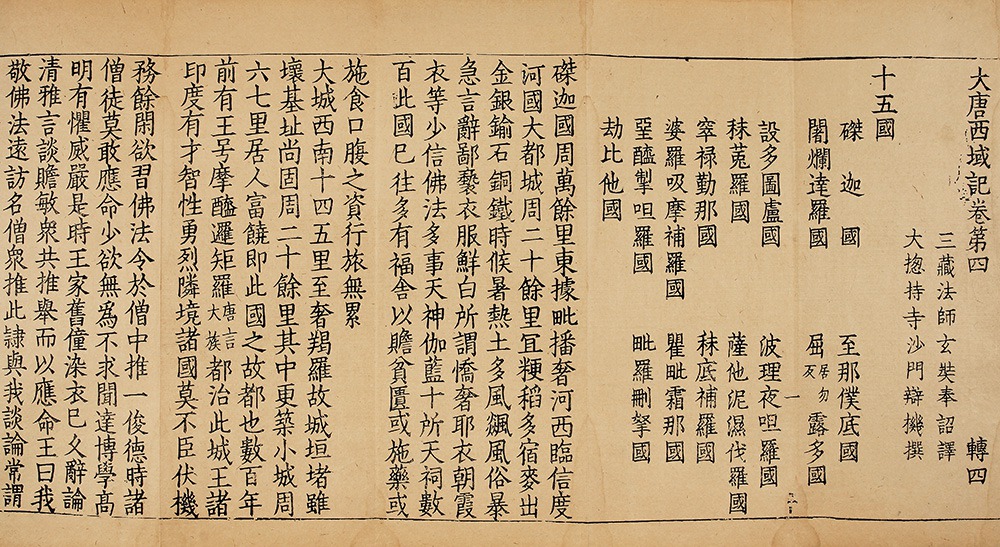 大唐西域記卷第四 轉四
三藏法師玄奘奉詔譯
大揔持寺沙門辯機撰
十五國
磔迦國 至那僕底國
闍爛達羅國 屈居勿反露多國
設多圖盧國 波理夜呾羅國
秣菟羅國 薩他泥濕伐羅國
窣祿勤那國 秣底補羅國
婆羅吸摩補羅國 瞿毗霜那國
堊醯掣呾羅國 毗羅刪拏國
劫比他國
磔迦國周萬餘里東據毗播奢河西臨信度
河國大都城周二十餘里宜粳稻多宿麥出
金銀鍮石銅鐵時候暑熱土多風飆風俗暴
急言辭鄙褻衣服鮮白所謂憍奢耶衣朝霞
衣等少信佛法多事天神伽藍十所天祠數
百此國已往多有福舍以贍貧匱或施藥或
施食口腹之資行旅無累
大城西南十四五里至奢羯羅故城垣堵雖
壞基址尚固周二十餘里其中更築小城周
六七里居人富饒即此國之故都也數百年
前有王号摩醯邏矩羅唐言大族都治此城王諸
印度有才智性勇烈隣境諸國莫不臣伏機
務餘閑欲習佛法令於僧中推一俊德時諸
僧徒莫敢應命少欲無為不求聞達博學高
明有懼威嚴是時王家舊僮染衣已久辭論
清雅言談贍敏衆共推舉而以應命王曰我
敬佛法遠訪名僧衆推此隸與我談論常謂